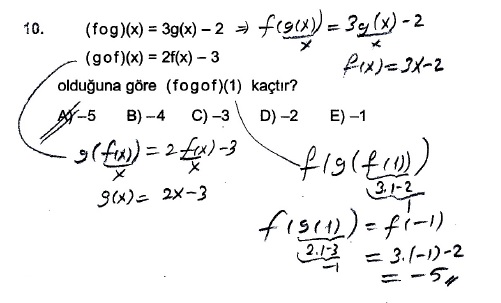 10. (fog)(x) = 3g(x) – 2 ⇒ f(g(x)) = 3g(x) - 2
x x
(gof)(x) = 2f(x) – 3
f(x) = 3x - 2
olduğuna göre (fogof)(1) kaçtır?
A) –5 B) –4 C) –3 D) –2 E) –1
g(f(x)) = 2f(x) - 3
x x
g(x) = 2x - 3
f(g(f(1)))
3.1-2
1
f(g(1)) = f(-1)
2.1-3
-1
= 3.(-1) - 2
= -5